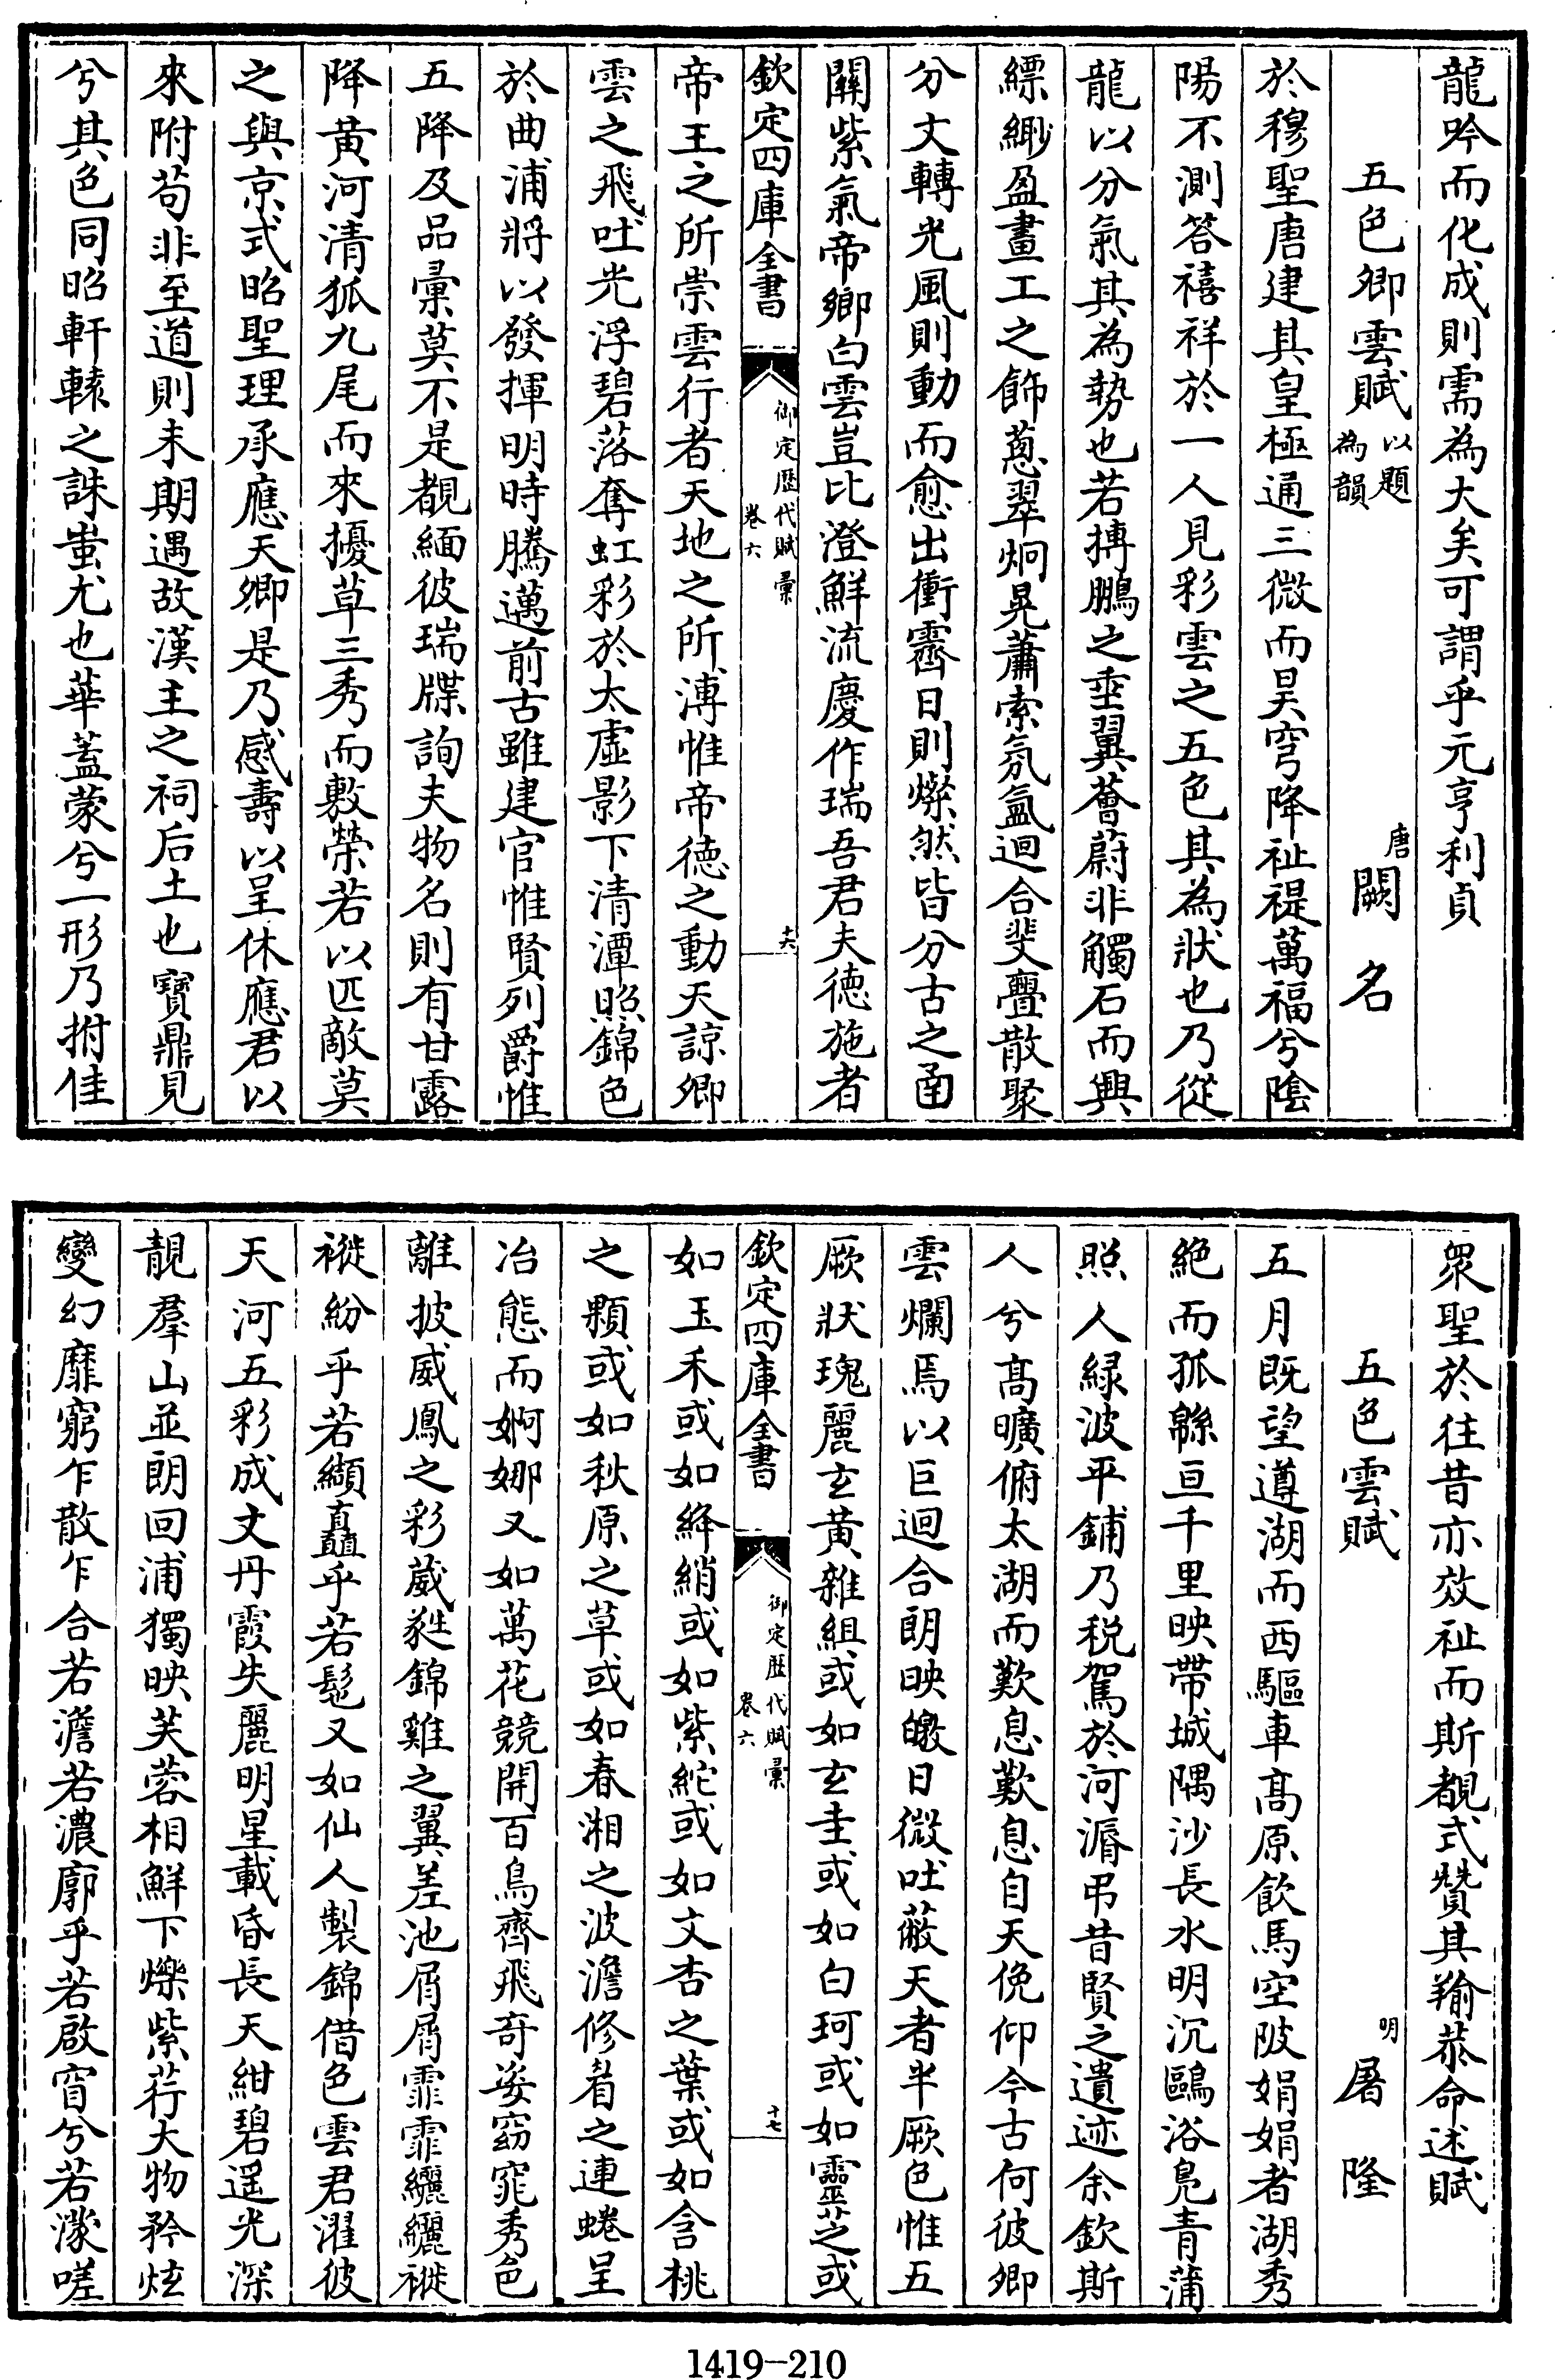 龍吟而化成則需為大矣可謂乎元亨利貞
五色卿雲賦以題為韻 唐闕名
於穆聖唐建其皇極通三微而昊穹降祉禔萬福兮陰
陽不測答禧祥於一人見彩雲之五色其為狀也乃從
龍以分氣其為勢也若搏鵬之垂翼薈蔚非觸石而興
縹緲盈畫工之飾蔥翠炯晃蕭索氛氳迴合斐亹散聚
分丈轉光風則動而愈出衝霽日則燦然皆分古之南
關紫氣帝鄉白雲豈比澄鮮流慶作瑞吾君夫德施者
欽定四庫全書 御定歷代賦彙 卷六 十六
帝王之所崇雲行者天地之所溥惟帝德之動天諒卿
雲之飛吐光浮碧落奪虹彩於太虛影下清潭照錦色
於曲浦將以發揮明時騰邁前古雖建官惟賢列爵惟
五降及品彙莫不是覩緬彼瑞牒詢夫物名則有甘露
降黃河清狐九尾而來擾草三秀而敷榮若以匹敵莫
之與京式昭聖理承應天卿是乃感壽以呈休應君以
來附苟非至道則未期遇故漢主之祠后土也寶鼎見
兮其色同昭軒轅之誅蚩尤也華蓋蒙兮一形乃拊佳
眾聖於往昔亦效祉而斯覩式贊其羭恭命述賦
五色雲賦 明屠隆
五月既望遵湖而西驅車高原飲馬空陂娟娟者湖秀
絶而孤緜亘千里映帶城隅沙長水明沉鷗浴鳧青蒲
照人緑波平鋪乃税駕於河漘弔昔賢之遺迹余欽斯
人兮高曠俯太湖而歎息歎息自天俛仰今古何彼卿
雲爛焉以巨迴合朗映皦日微吐蔽天者半厥色惟五
厥狀瑰麗玄黃雜組或如玄圭或如白珂或如靈芝或
欽定四庫全書 御定歷代賦彙 卷六 十七
如玉禾或如絳綃或如紫紽或如文杏之葉或如含桃
之顆或如秋原之草或如春湘之波澹修眉之連蜷呈
冶態而婀娜又如萬花競開百鳥齊飛奇姿窈窕秀色
離披威鳳之彩葳蕤錦雞之翼差池屑屑霏霏纚纚褷
褷紛乎若纈矗乎若髢又如仙人製錦借色雲君濯彼
天河五彩成文丹霞失麗明星載昏長天紺碧遥光深
靚羣山並朗回浦獨映芙蓉相鮮下爍紫荇大物矜炫
變幻靡窮乍散乍合若澹若濃廓乎若啟窅兮若濛嗟
1419-210